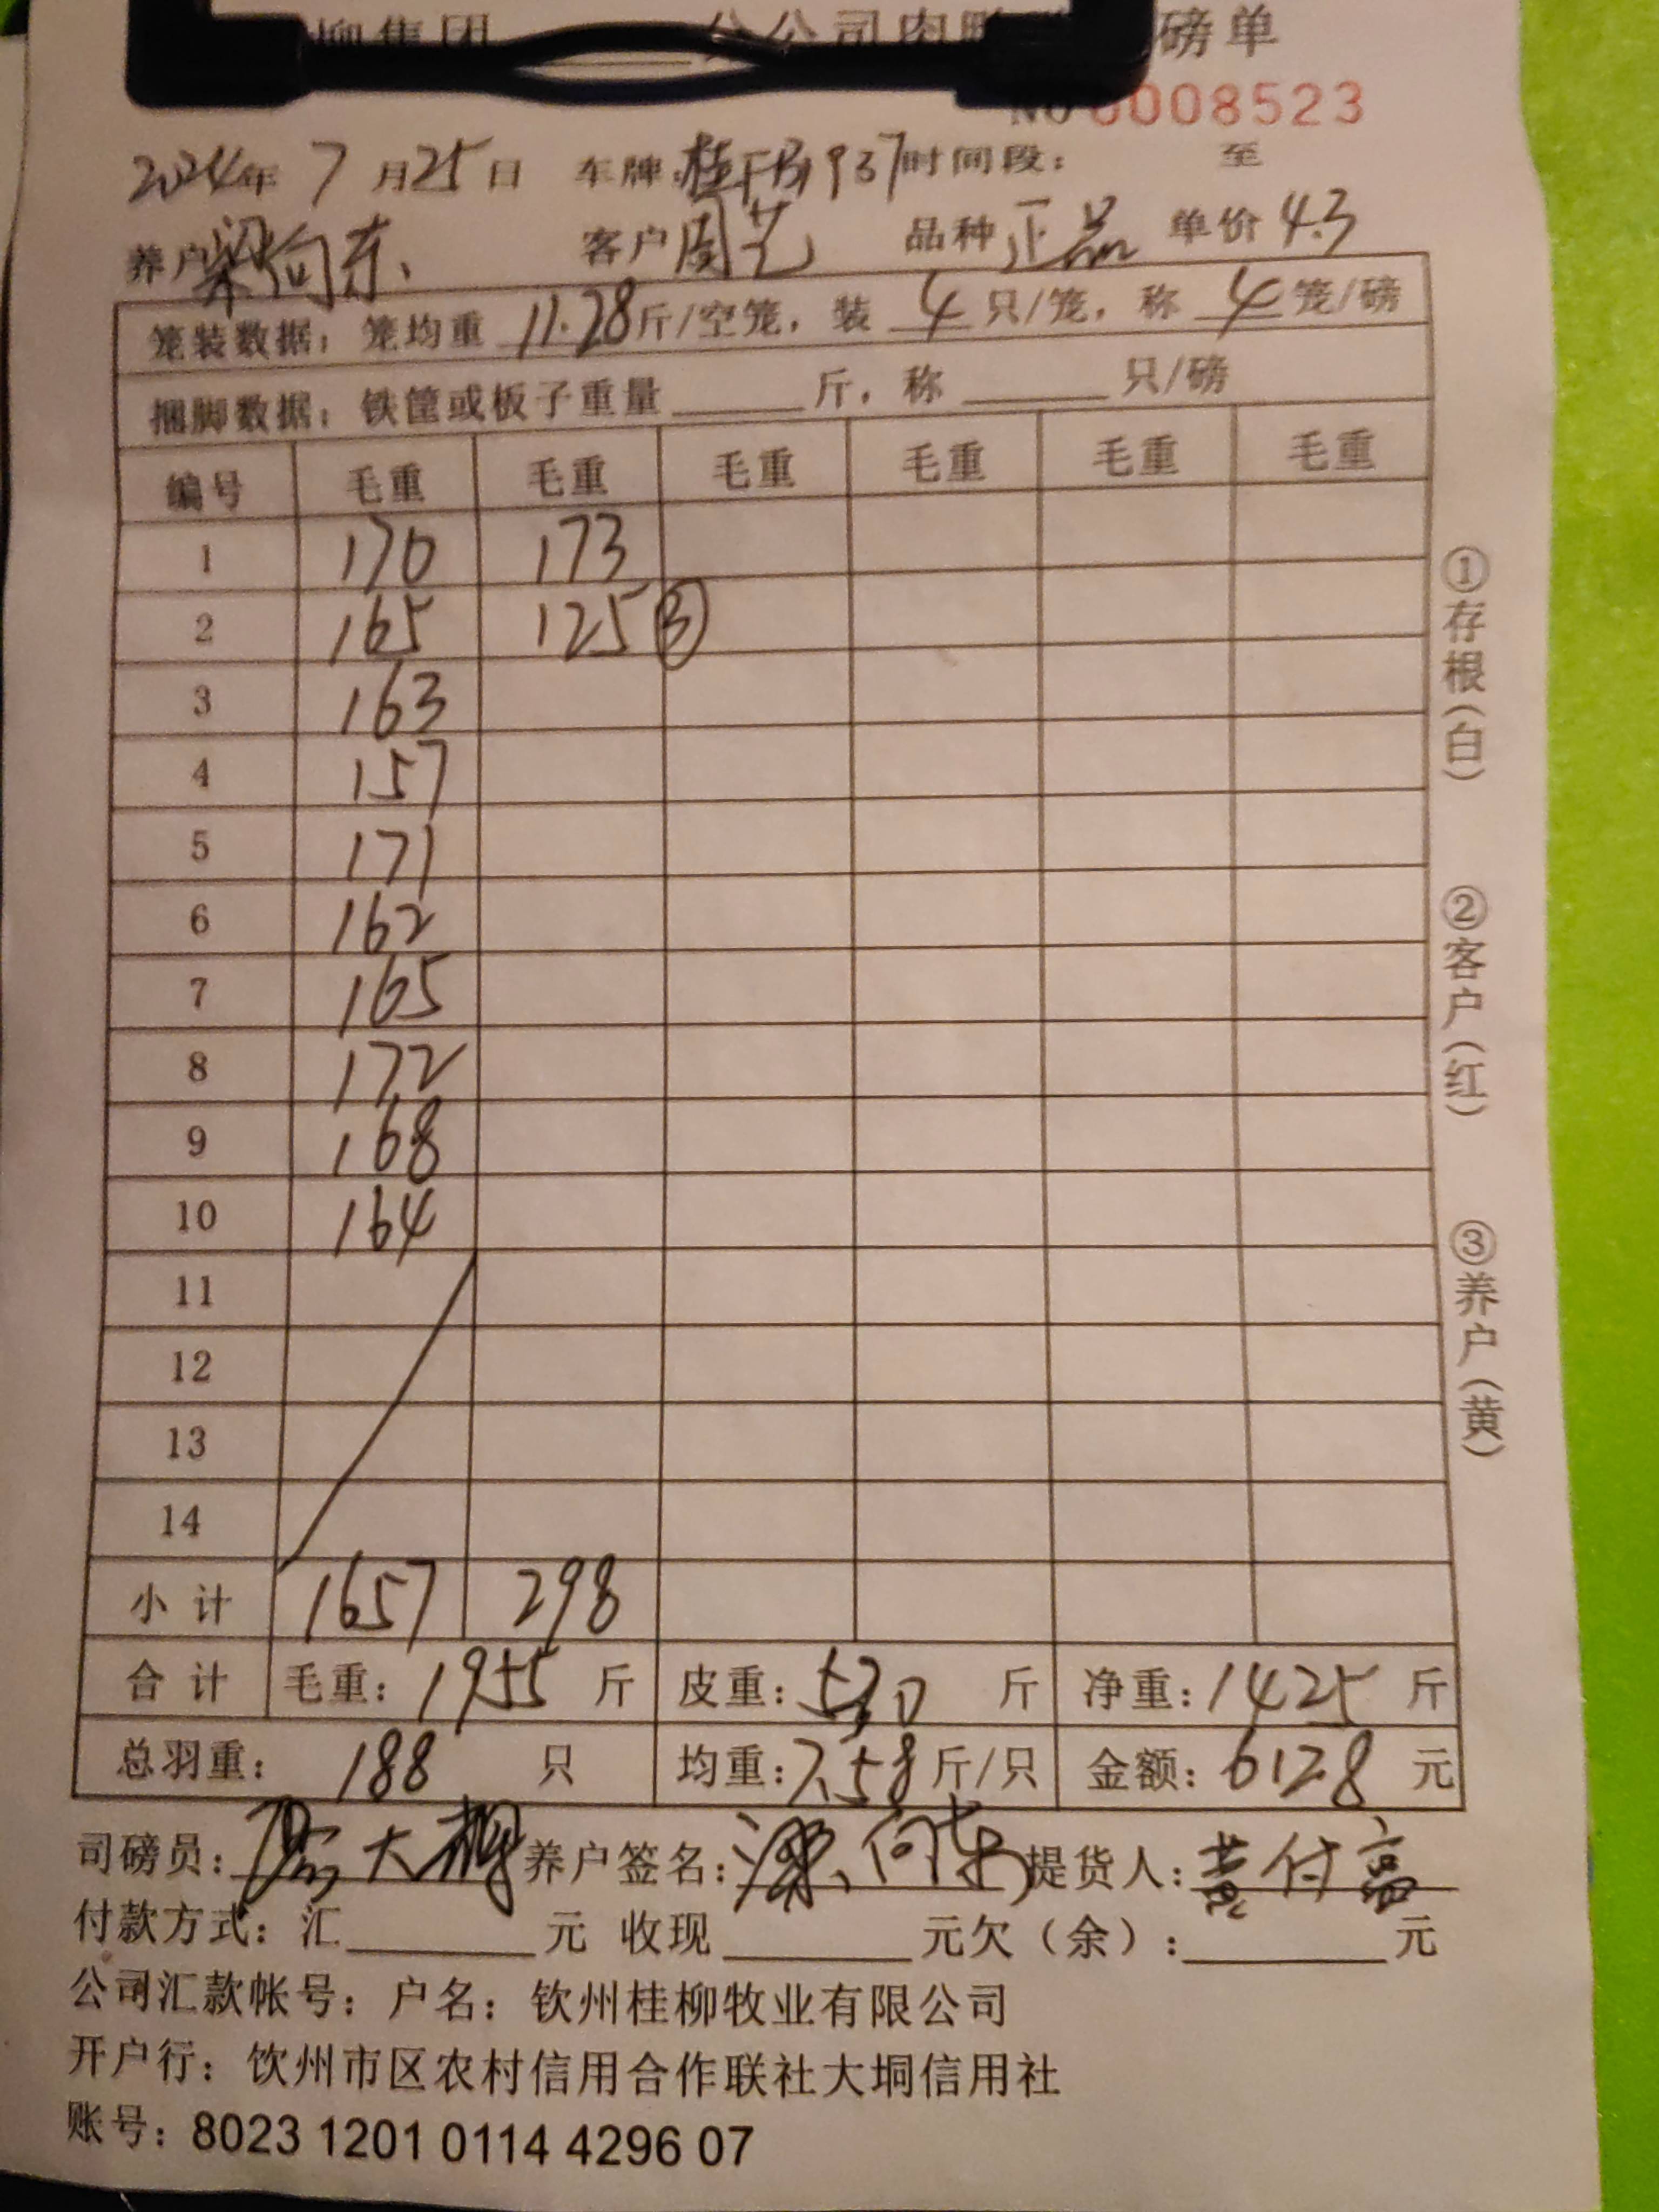 柳集团 分公司肉鸭 磅单
No 0008523
2024年 7 月 25 日 车牌: 937 时间段: 至
养户 梁向东 客户 周艺 品种 正品 单价 4.3
笼装数据: 笼均重 11.28 斤/空笼, 装 4 只/笼, 称 4 笼/磅
捆脚数据: 铁筐或板子重量 斤, 称 只/磅
编号 毛重 毛重 毛重 毛重 毛重 毛重
1 170 173
2 165 125 ③
3 163
4 157
5 171
6 162
7 165
8 172
9 168
10 164
11
12
13
14
小 计 1657 298
合 计 毛重: 1955 斤 皮重: 530 斤 净重: 1425 斤
总羽重: 188 只 均重: 7.58 斤/只 金额: 6128 元
司磅员: 大柳 养户签名: 梁向东 提货人: 黄付高
付款方式: 汇 元 收现 元欠(余): 元
公司汇款帐号: 户名: 钦州桂柳牧业有限公司
开户行: 钦州市区农村信用合作联社大垌信用社
账号: 8023 1201 0114 4296 07
①存根(白)
②客户(红)
③养户(黄)